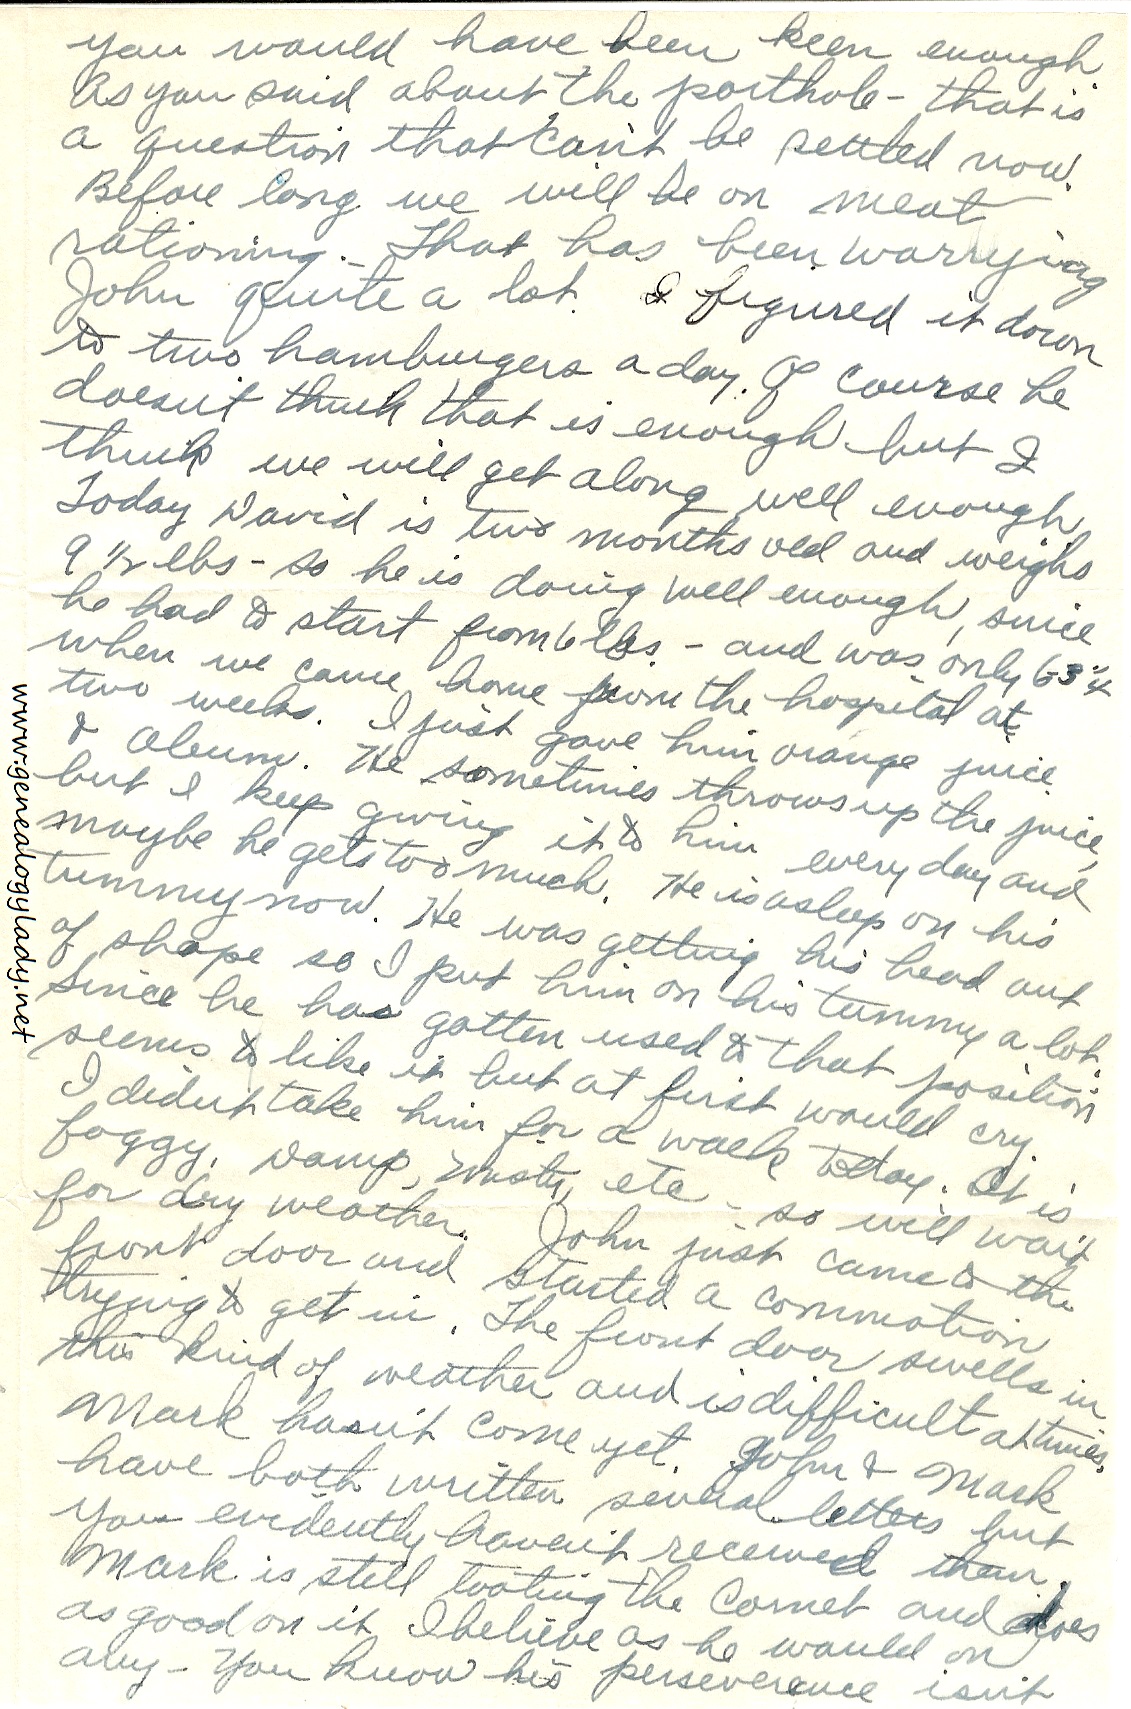 you would have been keen enough.
As you said about the porthole - that is
a question that can't be settled now.
Before long we will be on meat
rationing - That has been worrying
John quite a lot. I figured it down
to two hamburgers a day. Of course he
doesn't think that is enough but I
think we will get along well enough.
Today David is two months old and weighs
9 1/2 lbs - so he is doing well enough, since
he had to start from 6 lbs. - and was only 6-3 1/4
when we came home from the hospital at
two weeks. I just gave him orange juice
& Oleum. He sometimes throws up the juice,
but I keep giving it to him every day and
maybe he gets too much. He is asleep on his
tummy now. He was getting his head out
of shape so I put him on his tummy a lot.
Since he has gotten used to that position
seems to like it but at first would cry.
I didn't take him for a walk today. It is
foggy, damp, misty, etc - so will wait
for dry weather. John just came to the
front door and started a commotion
trying to get in. The front door swells in
this kind of weather and is difficult at times.
Mark hasn't come yet. John & Mark
have both written several letters but
you evidently haven't received them.
Mark is still tooting the cornet and does
as good on it I believe as he would on
any - You know his perseverence isn't
www.genealogylady.net